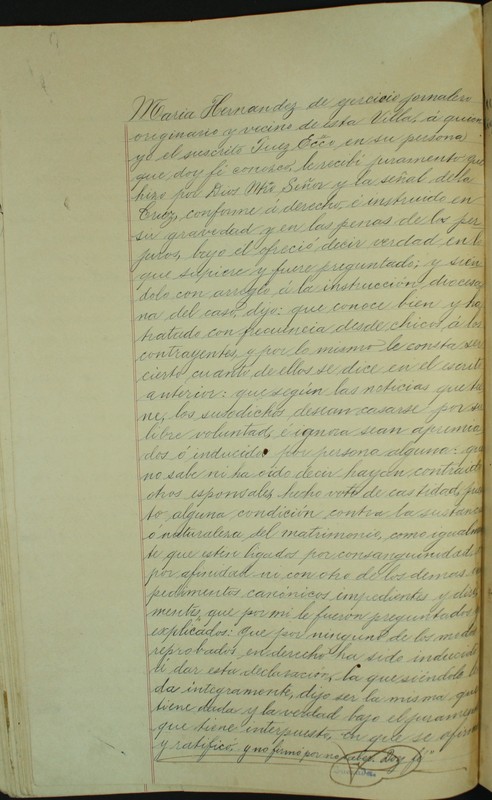 Maria Hernandez de ejercicio jornalero
originario y vecino de esta Villa, á quien
yo el suscrito Juez Ecco en su persona
que doy fé conosco, le recibí juramento que
hizo por Dios Ntro Señor y la señal de la
Cruz, conforme á derecho, é instruido en
su gravedad y en las penas de los per
juros, bajo el ofreció decir verdad en lo
que supiere y fuere preguntado; y sien
dolo con arreglo á la instrucción diocesa
na del caso, dijo: que conoce bien y ha
tratado con frecuencia desde chicos á los
contrayentes, y por lo mismo le consta ser
cierto cuanto de ellos se dice en el escrito
anterior: que según las noticias que tie
ne, los susodichos desean casarse por su
libre voluntad, é ignora sean apremia
dos ó inducidos por persona alguna: que
no sabe ni ha oido decir hayan contraido
otros esponsales, hecho voto de castidad, pues
to alguna condición contra la sustancia
ó naturaleza del matrimonio, como igualmen
te que esten ligados por consanguinidad
por afinidad ni con otro de los demas im
pedimentos canónicos impedientes y diri
mentes, que por mi le fueron preguntados y
explicados: que por ninguno de los modos
reprobados en derecho ha sido inducido
á dar esta declaración, la que siéndole leí
da integramente, dijo ser la misma que
tiene dada y la verdad bajo el juramento
que tiene interpuesto, en que se afirmó
y ratificó. y no firmó por no saber. Doy fé